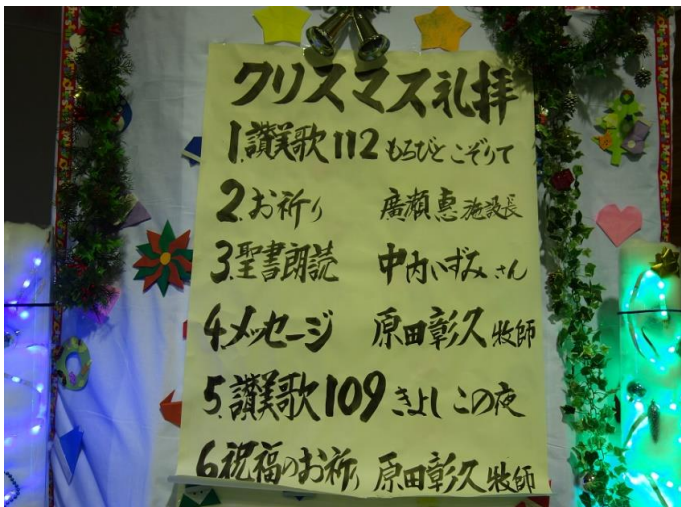 クリスマス礼拝
1.讃美歌112 もろびとこぞりて
2.お祈り 廣瀬恵施設長
3.聖書朗読 中内いずみさん
4.メッセージ 原田彰久牧師
5.讃美歌109 きよしこの夜
6.祝福のお祈り 原田彰久牧師